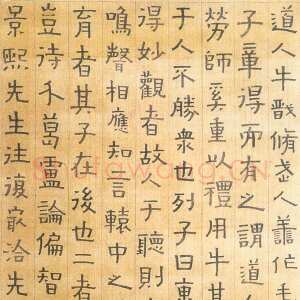 道人牛戩脩岱人
子章得而有之謂道
勞師奚重以禮用牛其
于人不勝衆也列子曰
得妙觀者故人于聽則
鳴聲相應知言轅中之
育者其子在後也二者
豈待禾葛盧論偏智
景熙先生往復冣洽先
Shufawang.CN